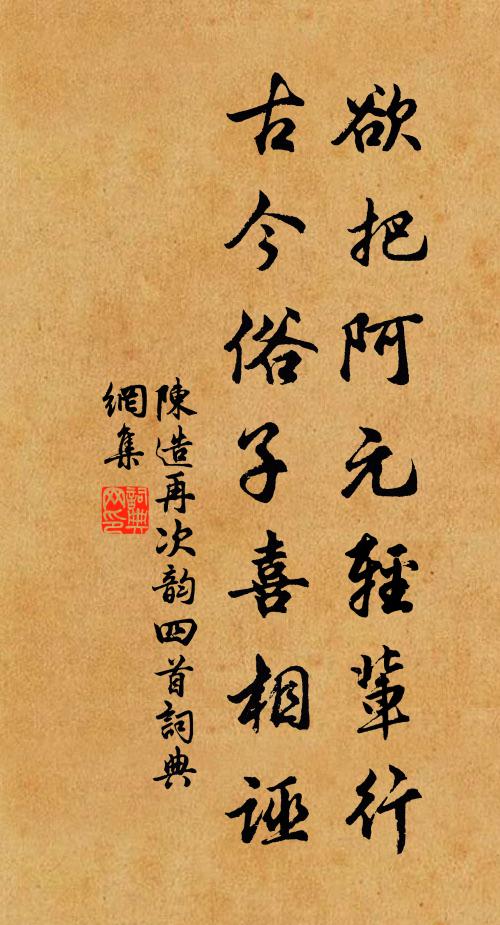 欲把阿元輕輩行
古今俗子喜相誣
陳造再次韵四首詞典
網集
詞典
网印